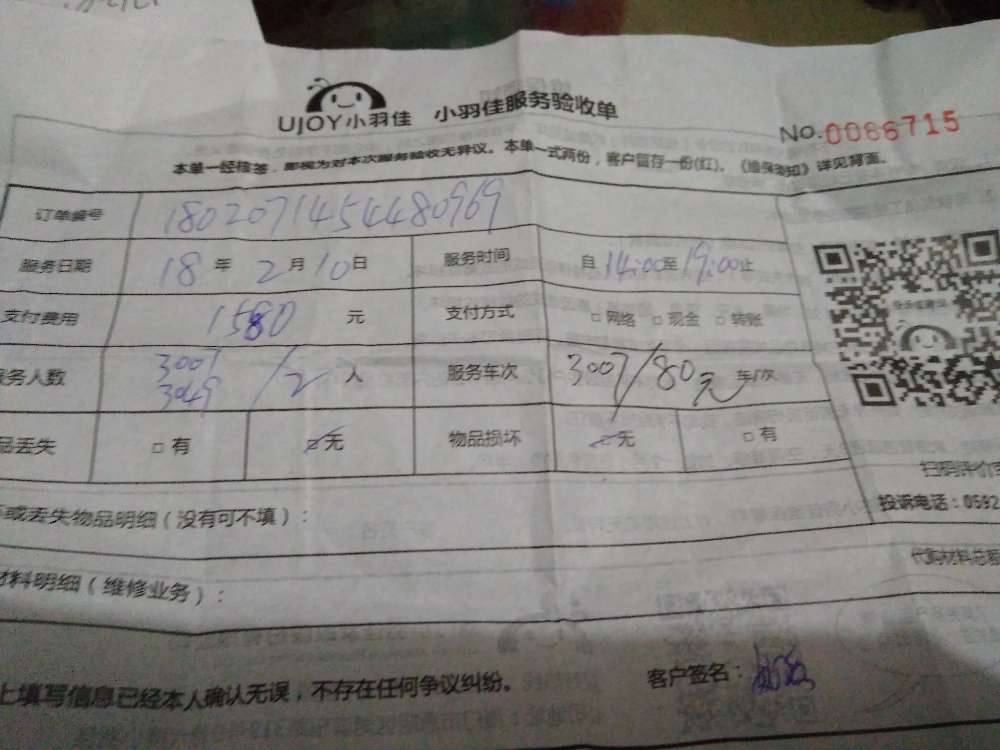 UJOY小羽佳 小羽佳服务验收单
No.0066715
本单一经核签，即视为对本次服务验收无异议。本单一式两份，客户留存一份(红)。《维保须知》详见背面。
订单编号 1802071454480969
服务日期 18年2月10日 服务时间 自14:00至19:00止
支付费用 1580元 支付方式 □网络 □现金 □转账
务人数 3007 3049 /2人 服务车次 3007/80元 车/次
品丢失 □有 ☑无 物品损坏 ☑无 □有
扫码评价
投诉电话：0592
或丢失物品明细（没有可不填）：
代购材料总额
材料明细（维修业务）：
上填写信息已经本人确认无误，不存在任何争议纠纷。
客户签名：